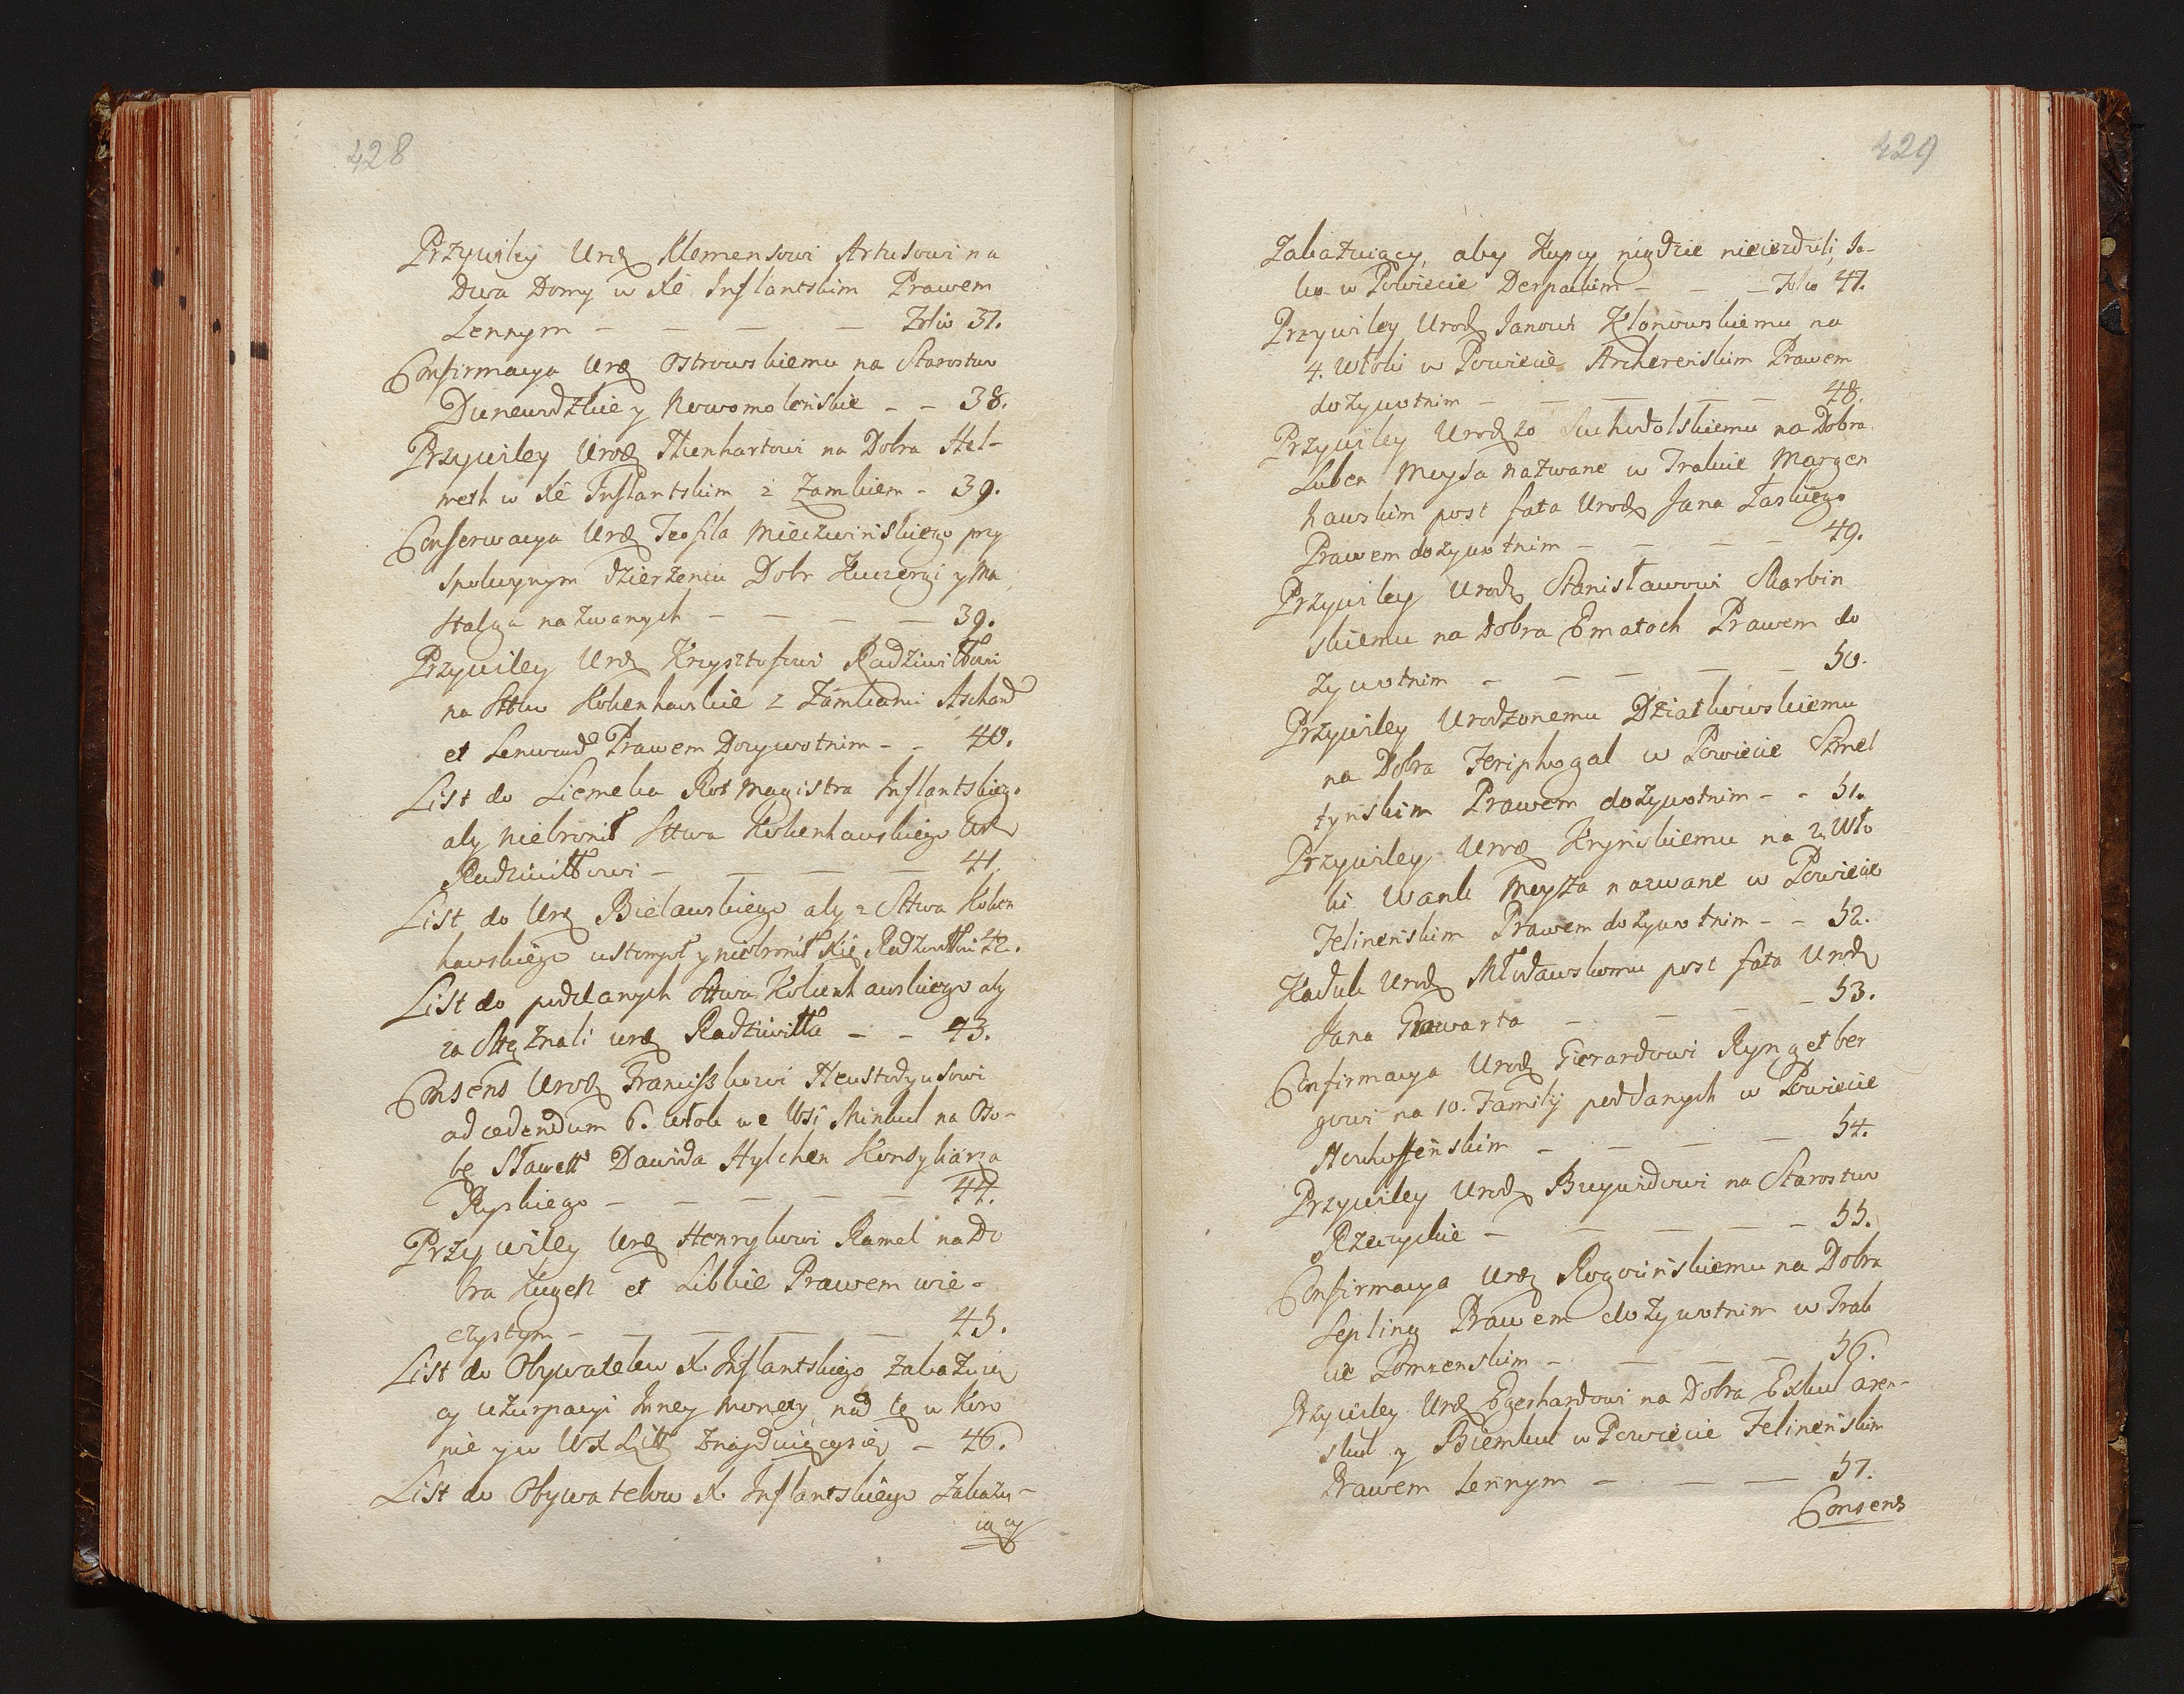 428
Przywiley Urꝫ Klemensowi Artusowi na
Dwa Domy w Xę Inflantskim Prawem
Lennym — — — — Folio 37.
Confirmacya Urꝫ Ostrowskiemu na Starostwo
Duneurdzkie y Nowomoleńskie - - 38.
Przywiley Urodꝫ Thenhartowi na Dobra Hel-
meth w Xę Inflantskim z Zamkiem - 39.
Conserwacya Urꝫ Teofila Mieczwińskiego przy
spolecznym dzierżeniu Dobr Kuczergi y Ma
Stalga nazwanych — — — — 39.
Przywiley Urꝫ Krzysztofowi Radziwiłłowi
na Sttwo Kokenhawskie z Zamkami Aschrad
et Lenward Prawem Dozywotnim - - 40.
List do Liemeka Rotmagistra Inflantskiego
aby niebronił Sttwa Kokenhawskiego Urꝫ
Radziwiłłowi — — — — 41.
List do Urꝫ Bielawskiego aby z Sttwa Koken
hawskiego ustompił y niebronił Się Radziwiłłowi 42.
List do poddanych Sttwa Kokenhawskiego aby
za Sttę znali urꝫ Radziwiłła - - 43.
Consens Urodꝫ Franciszkowi Neustodyusowi
ad cedendum 6. włok we Wsi Minkul na Oso-
bę Sławett Dawida Hylchen Konsyliarza
Ryskiego — — — — — 44.
Przywiley Urꝫ Henrykowi Ramel na Do
bra Kugen et Libkie Prawem wie-
czystym — — — — — 45.
List do Obywatelow X. Inflantskiego Zakazuią
cy uzurpacyi Inney monety, nad tę w Koro
nie y w WX Litt znayduiącą się - 46.
List do Obywatelow X. Inflantskiego Zakazu-
iący
429
Zakazuiący, aby Kupcy nigdzie nieiezdzili, Ja-
ko w Powiecie Derpackim — — — Folio 47.
Przywiley Urodꝫ Janowi Klonowskiemu na
4. Włoki w Powiecie Archereńskim Prawem
dozywotnim — — — — — 48.
Przywiley Urodzo Suchodolskiemu na Dobra
Luben Meysa nazwane w Trakcie Margen
hawskim post fata Urodꝫ Jana Łaskiego
Prawem dozywotnim — — — — 49.
Przywiley Urodꝫ Stanisławowi Skarbin
skiemu na Dobra Ematoch Prawem do
zywotnim — — — — — 50.
Przywiley Urodzonemu Dziatkowskiemu
na Dobra Feriphogal w Powiecie Szmel
tyńskim Prawem dozywotnim - - 51.
Przywiley Urodꝫ Kryńskiemu na 2. Wło
ki Wank Meysza nazwane w Powiecie
Felineńskim Prawem dozywotnim - - 52.
Kaduk Urodꝫ Młodawskomu post fata Urodꝫ
Jana Grawarta — — — — 53.
Confirmacya Urodꝫ Gierardowi Ryngelber
gowi na 10. Familij poddanych w Powiecie
Neuhoffeńskim — — — — 54.
Przywiley Urodꝫ Buywidowi na Starostwo
Rzeczyckie — — — — — 55.
Confirmacya Urodꝫ Rogozińskiemu na Dobra
Sepling Prawem dozywotnim w Trak
cie Pomzenskim — — — — 56.
Przywiley Urꝫ Egerhardowi na Dobra Exkul aren-
skul y Biemkul w Powiecie Felineńskim
Prawem Lennym — — — 57.
Consens